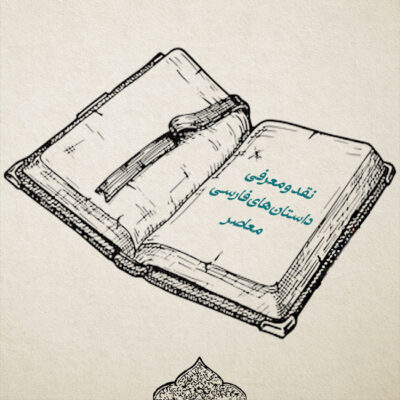 نقد و معرفی
داستان‌های فارسی
معاصر